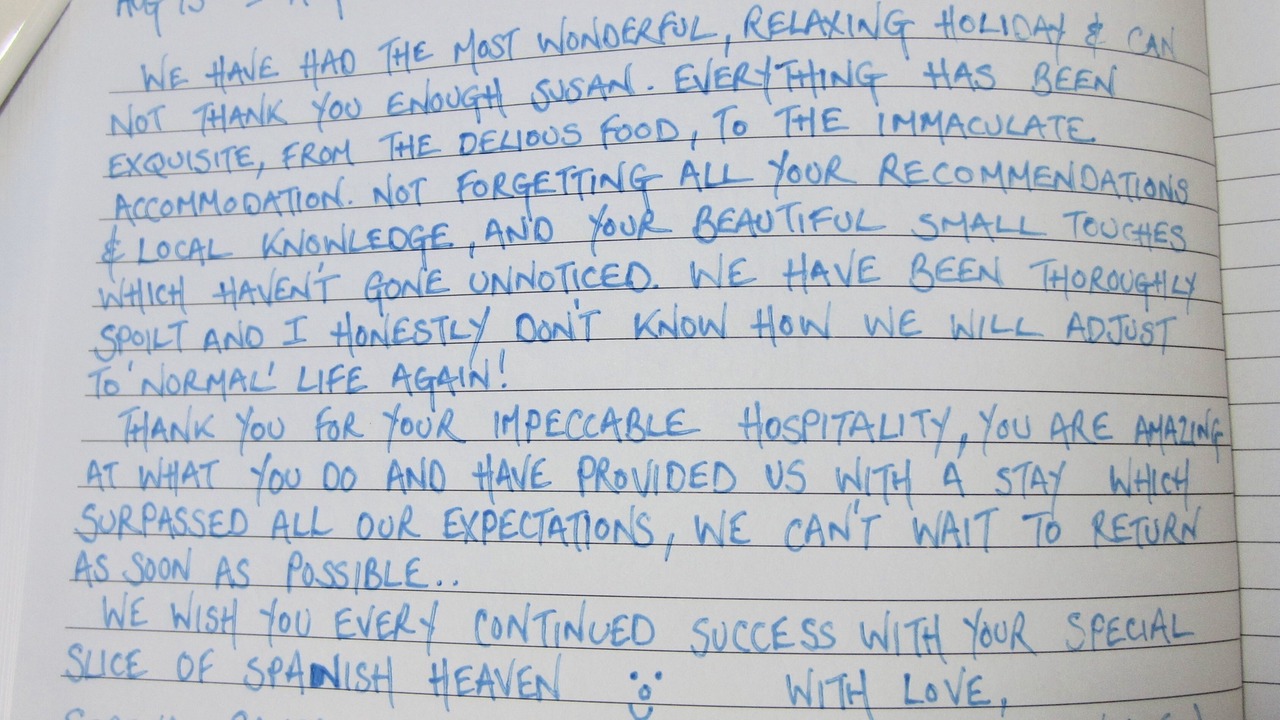 WE HAVE HAD THE MOST WONDERFUL, RELAXING HOLIDAY & CAN
NOT THANK YOU ENOUGH SUSAN. EVERYTHING HAS BEEN
EXQUISITE, FROM THE DELIOUS FOOD, TO THE IMMACULATE
ACCOMMODATION. NOT FORGETTING ALL YOUR RECOMMENDATIONS
& LOCAL KNOWLEDGE, AND YOUR BEAUTIFUL SMALL TOUCHES
WHICH HAVEN'T GONE UNNOTICED. WE HAVE BEEN THOROUGHLY
SPOILT AND I HONESTLY DON'T KNOW HOW WE WILL ADJUST
TO 'NORMAL' LIFE AGAIN!
THANK YOU FOR YOUR IMPECCABLE HOSPITALITY, YOU ARE AMAZING
AT WHAT YOU DO AND HAVE PROVIDED US WITH A STAY WHICH
SURPASSED ALL OUR EXPECTATIONS, WE CAN'T WAIT TO RETURN
AS SOON AS POSSIBLE..
WE WISH YOU EVERY CONTINUED SUCCESS WITH YOUR SPECIAL
SLICE OF SPANISH HEAVEN WITH LOVE,